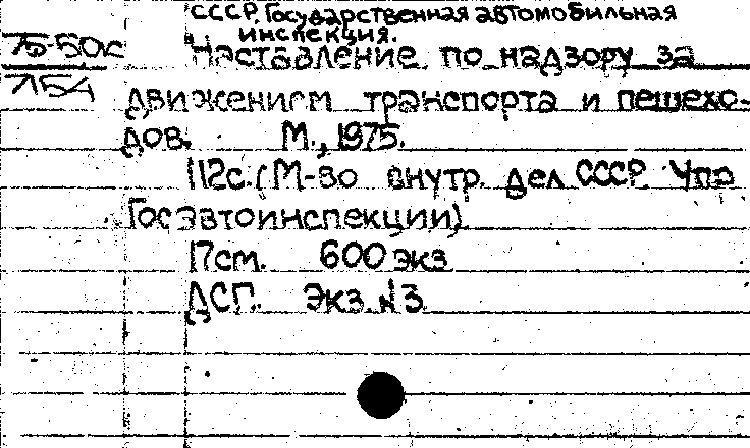 СССР. Государственная автомобильная
инспекция.
Наставление по надзору за
движением транспорта и пешехо-
дов. М., 1975.
112с. (М-во внутр. дел СССР. Упр
Госавтоинспекции)
17см. 600 экз
ДСП. Экз. №3